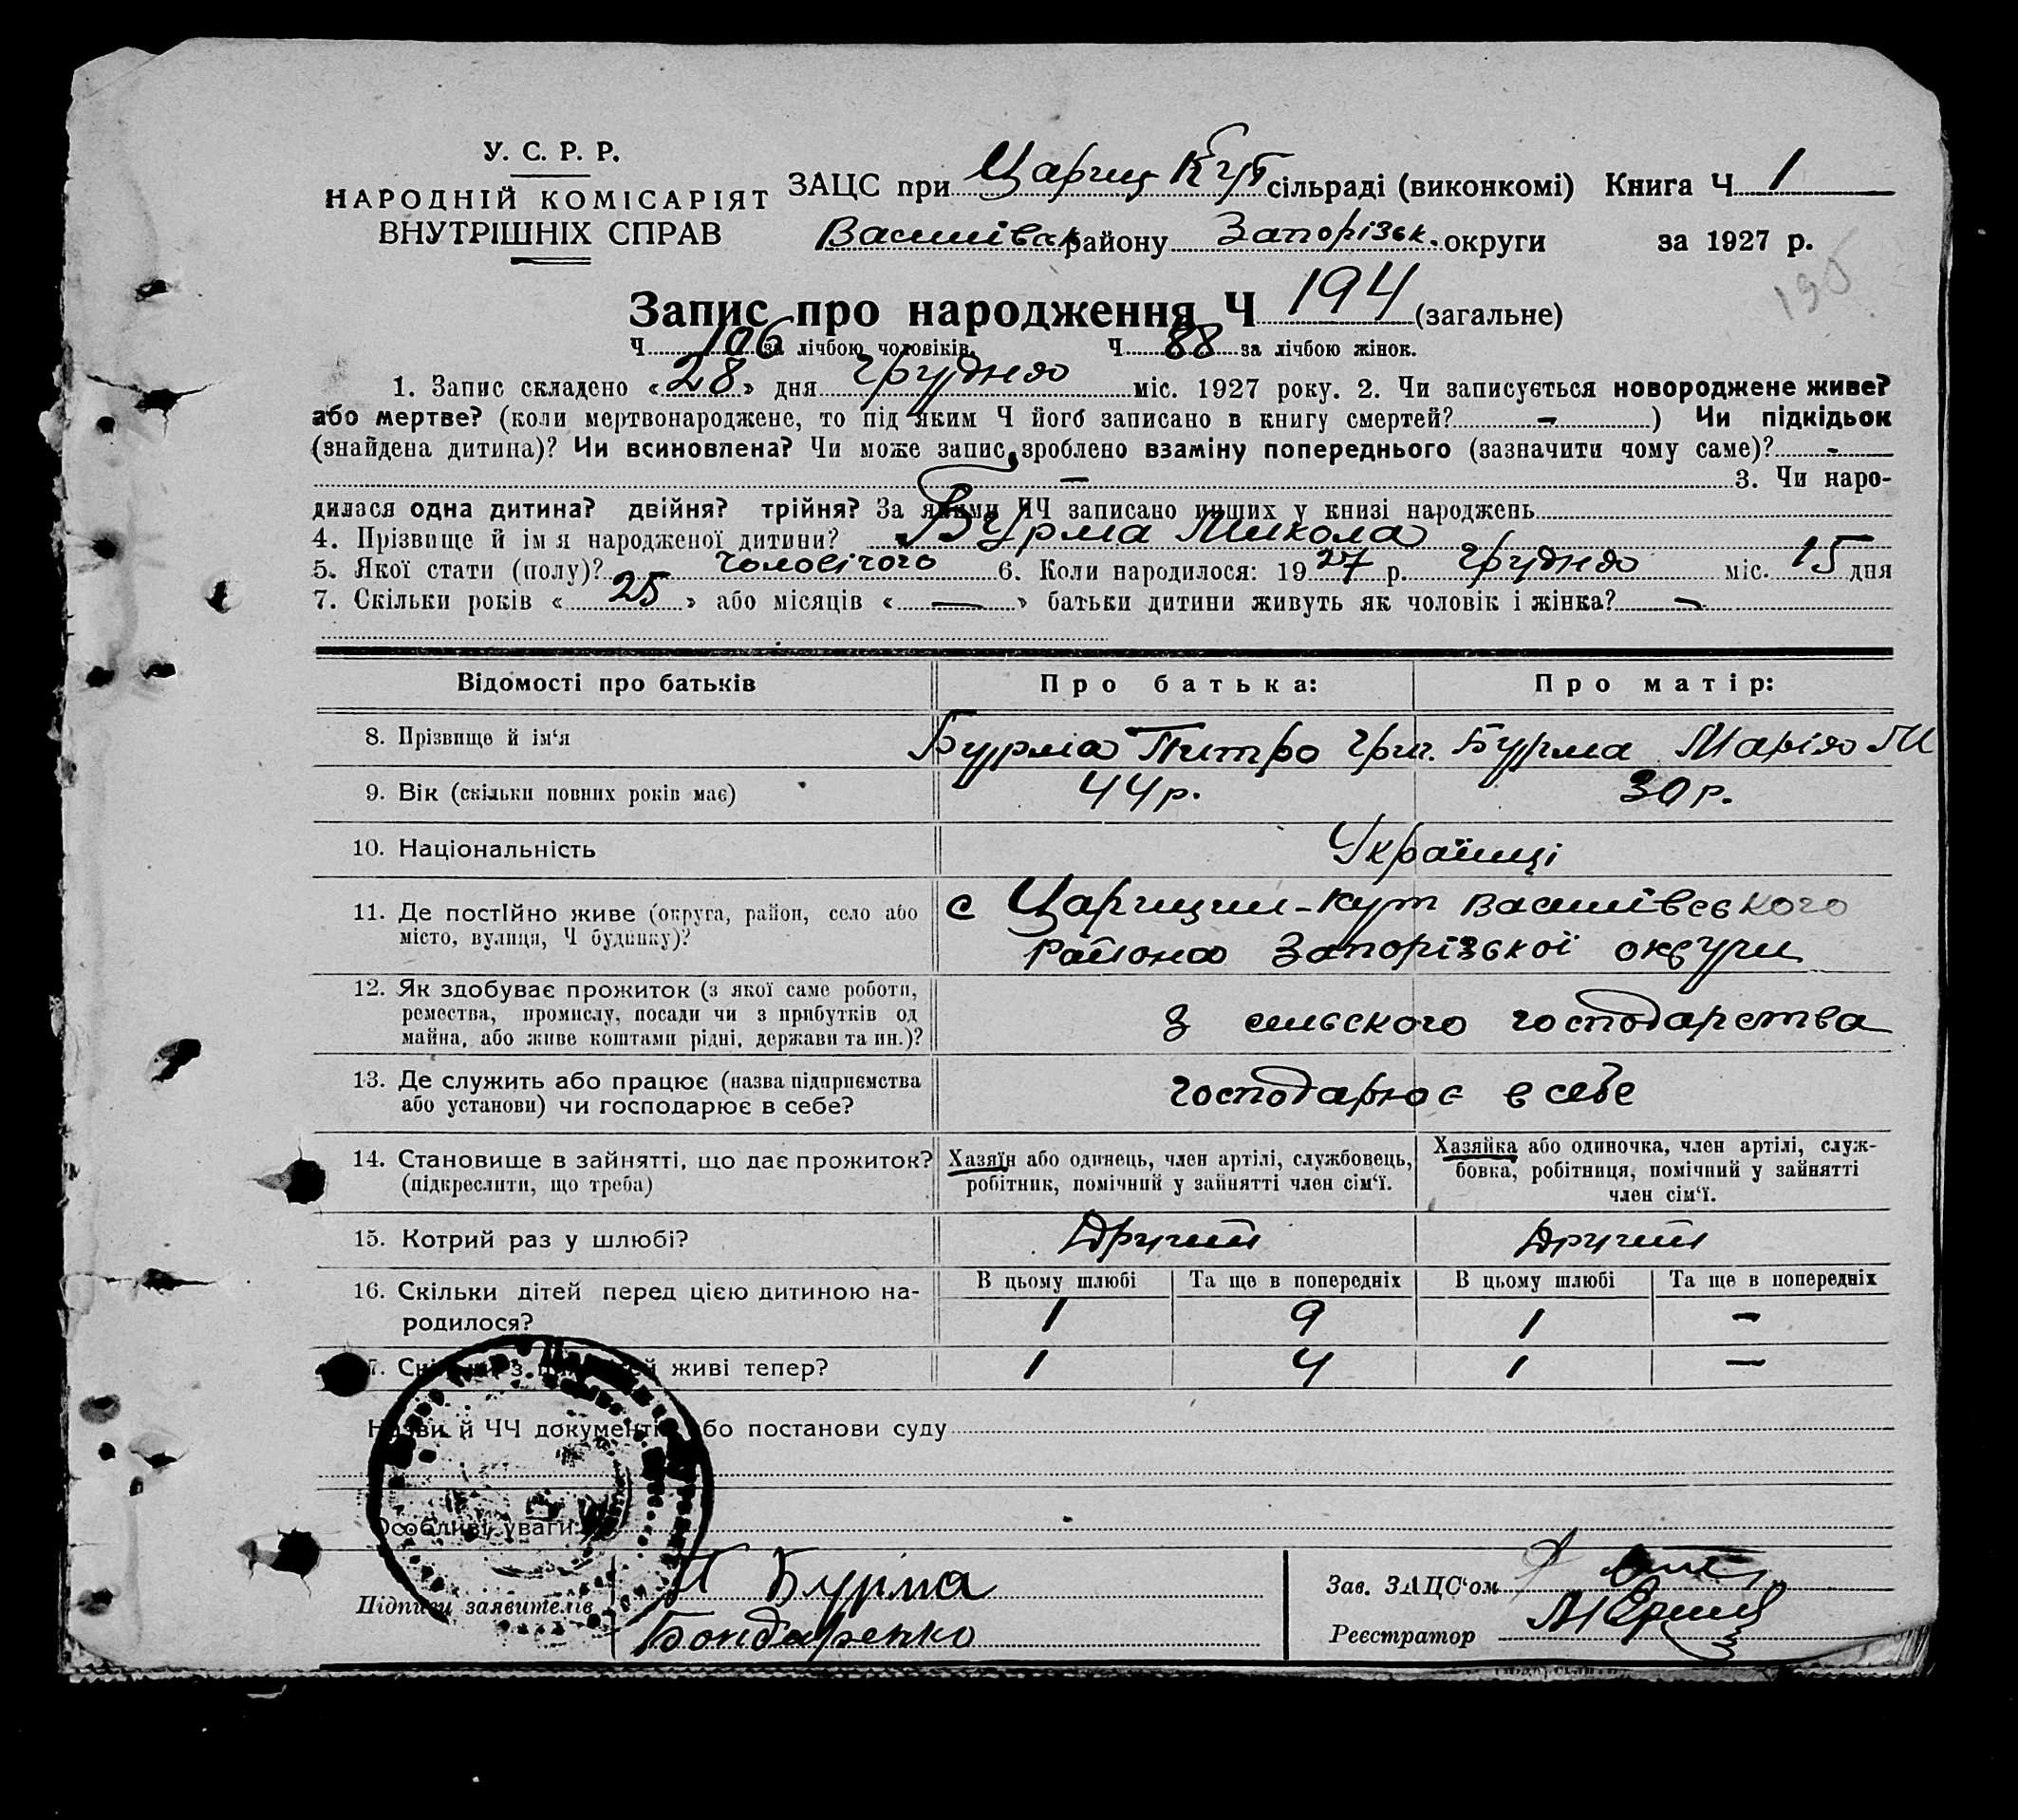 У. С. Р. Р.
НАРОДНІЙ КОМІСАРІЯТ
ВНУТРІШНІХ СПРАВ
ЗАЦС при Царици Кут сільраді (виконкомі) Книга Ч 1
Василівск району Запорізьк. округи за 1927 р.
195
Запис про народження Ч 194 (загальне)
Ч 106 за лічбою чоловіків. Ч 88 за лічбою жінок.
1. Запис складено «28» дня Грудня міс. 1927 року. 2. Чи записується новороджене живе?
або мертве? (коли мертвонароджене, то під яким Ч його записано в книгу смертей? - ) Чи підкідьок
(знайдена дитина)? Чи всиновлена? Чи може запис зроблено взаміну попереднього (зазначити чому саме)? -
— 3. Чи наро-
дилася одна дитина? двійня? трійня? За якими ЧЧ записано инших у книзі народжень
4. Прізвище й ім я народженої дитини? Бурма Микола
5. Якої стати (полу)? чоловічого 6. Коли народилося: 1927 р. Грудня міс. 15 дня
7. Скільки років «25» або місяців « — » батьки дитини живуть як чоловік і жінка? -
Відомості про батьків Про батька: Про матір:
8. Прізвище й ім‘я Бурма Питро Григ. Бурма Марія М
9. Вік (скільки повних років має) 44 р. 30 р.
10. Національність Українці
11. Де постійно живе (округа, район, село або с Царицин-Кут Василівського
місто, вулиця, Ч будинку)? Района Запорізької округи
12. Як здобуває прожиток (з якої саме роботи,
ремества, промислу, посади чи з прибутків од з сильского господарства
майна, або живе коштами рідні, держави та ин.)?
13. Де служить або працює (назва підприємства господарює в себе
або установи) чи господарює в себе?
14. Становище в зайнятті, що дає прожиток? Хазяїн або одинець, член артілі, службовець, Хазяйка або одиночка, член артілі, служ-
(підкреслити, що треба) робітник, помічний у зайнятті член сім‘ї. бовка, робітниця, помічний у зайнятті
член сім‘ї.
15. Котрий раз у шлюбі? Другий Другий
16. Скільки дітей перед цією дитиною на- В цьому шлюбі Та ще в попередніх В цьому шлюбі Та ще в попередніх
родилося? 1 9 1 -
живі тепер? 1 4 1 —
Назви й ЧЧ документів або постанови суду
Особливі уваги:
Підписи заявителів П Бурма Зав. ЗАЦС‘ом
Бондаренко Реєстратор